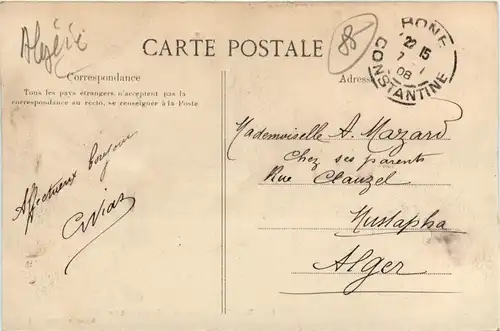 Algérie
88
CARTE POSTALE
BONE
22 15
7
08
CONSTANTINE
Correspondance
Adresse
Tous les pays étrangers n'acceptent pas la
correspondance au recto, se renseigner à la Poste
Affectueux bonjour
Mademoiselle A. Mazard
Chez ses parents
Rue Clauzel
Mustapha
Alger